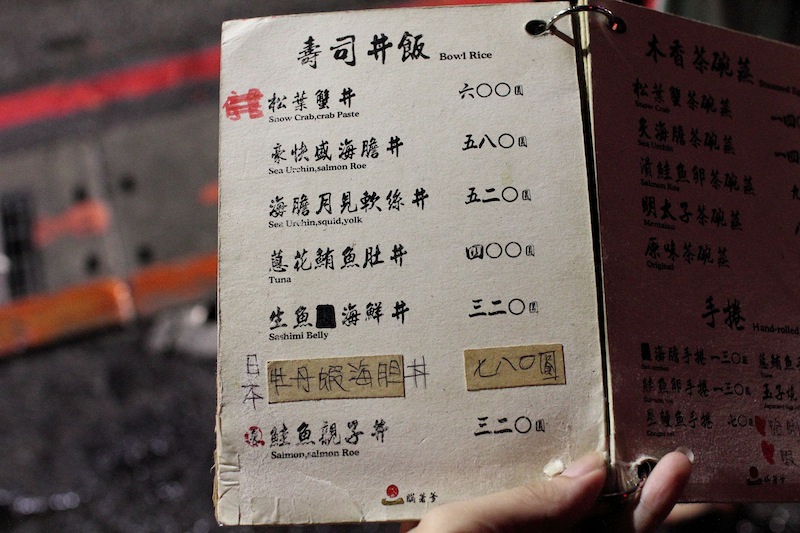 壽司丼飯 Bowl Rice
松葉蟹丼 六〇〇圓
Snow Crab,crab Paste
豪快盛海膽丼 五八〇圓
Sea Urchin,salmon Roe
海膽月見軟絲丼 五二〇圓
Sea Urchin,squid,yolk
蔥花鮪魚肚丼 四〇〇圓
Tuna
生魚 海鮮丼 三二〇圓
Sashimi Belly
日本 牡丹蝦海胆丼 七八〇圓
鮭魚親子丼 三二〇圓
Salmon,salmon Roe
木香茶碗蒸 Steamed
松葉蟹茶碗蒸
Snow Crab
炙海膽茶碗蒸
Sea Urchin
漬鮭魚卵茶碗蒸
Salmon Roe
明太子茶碗蒸
Mentaiko
原味茶碗蒸
Original
手捲 Hand-rolled
海膽手捲 一三〇
鮭魚卵手捲 一三〇
手捲 七〇
玉子燒
蝦